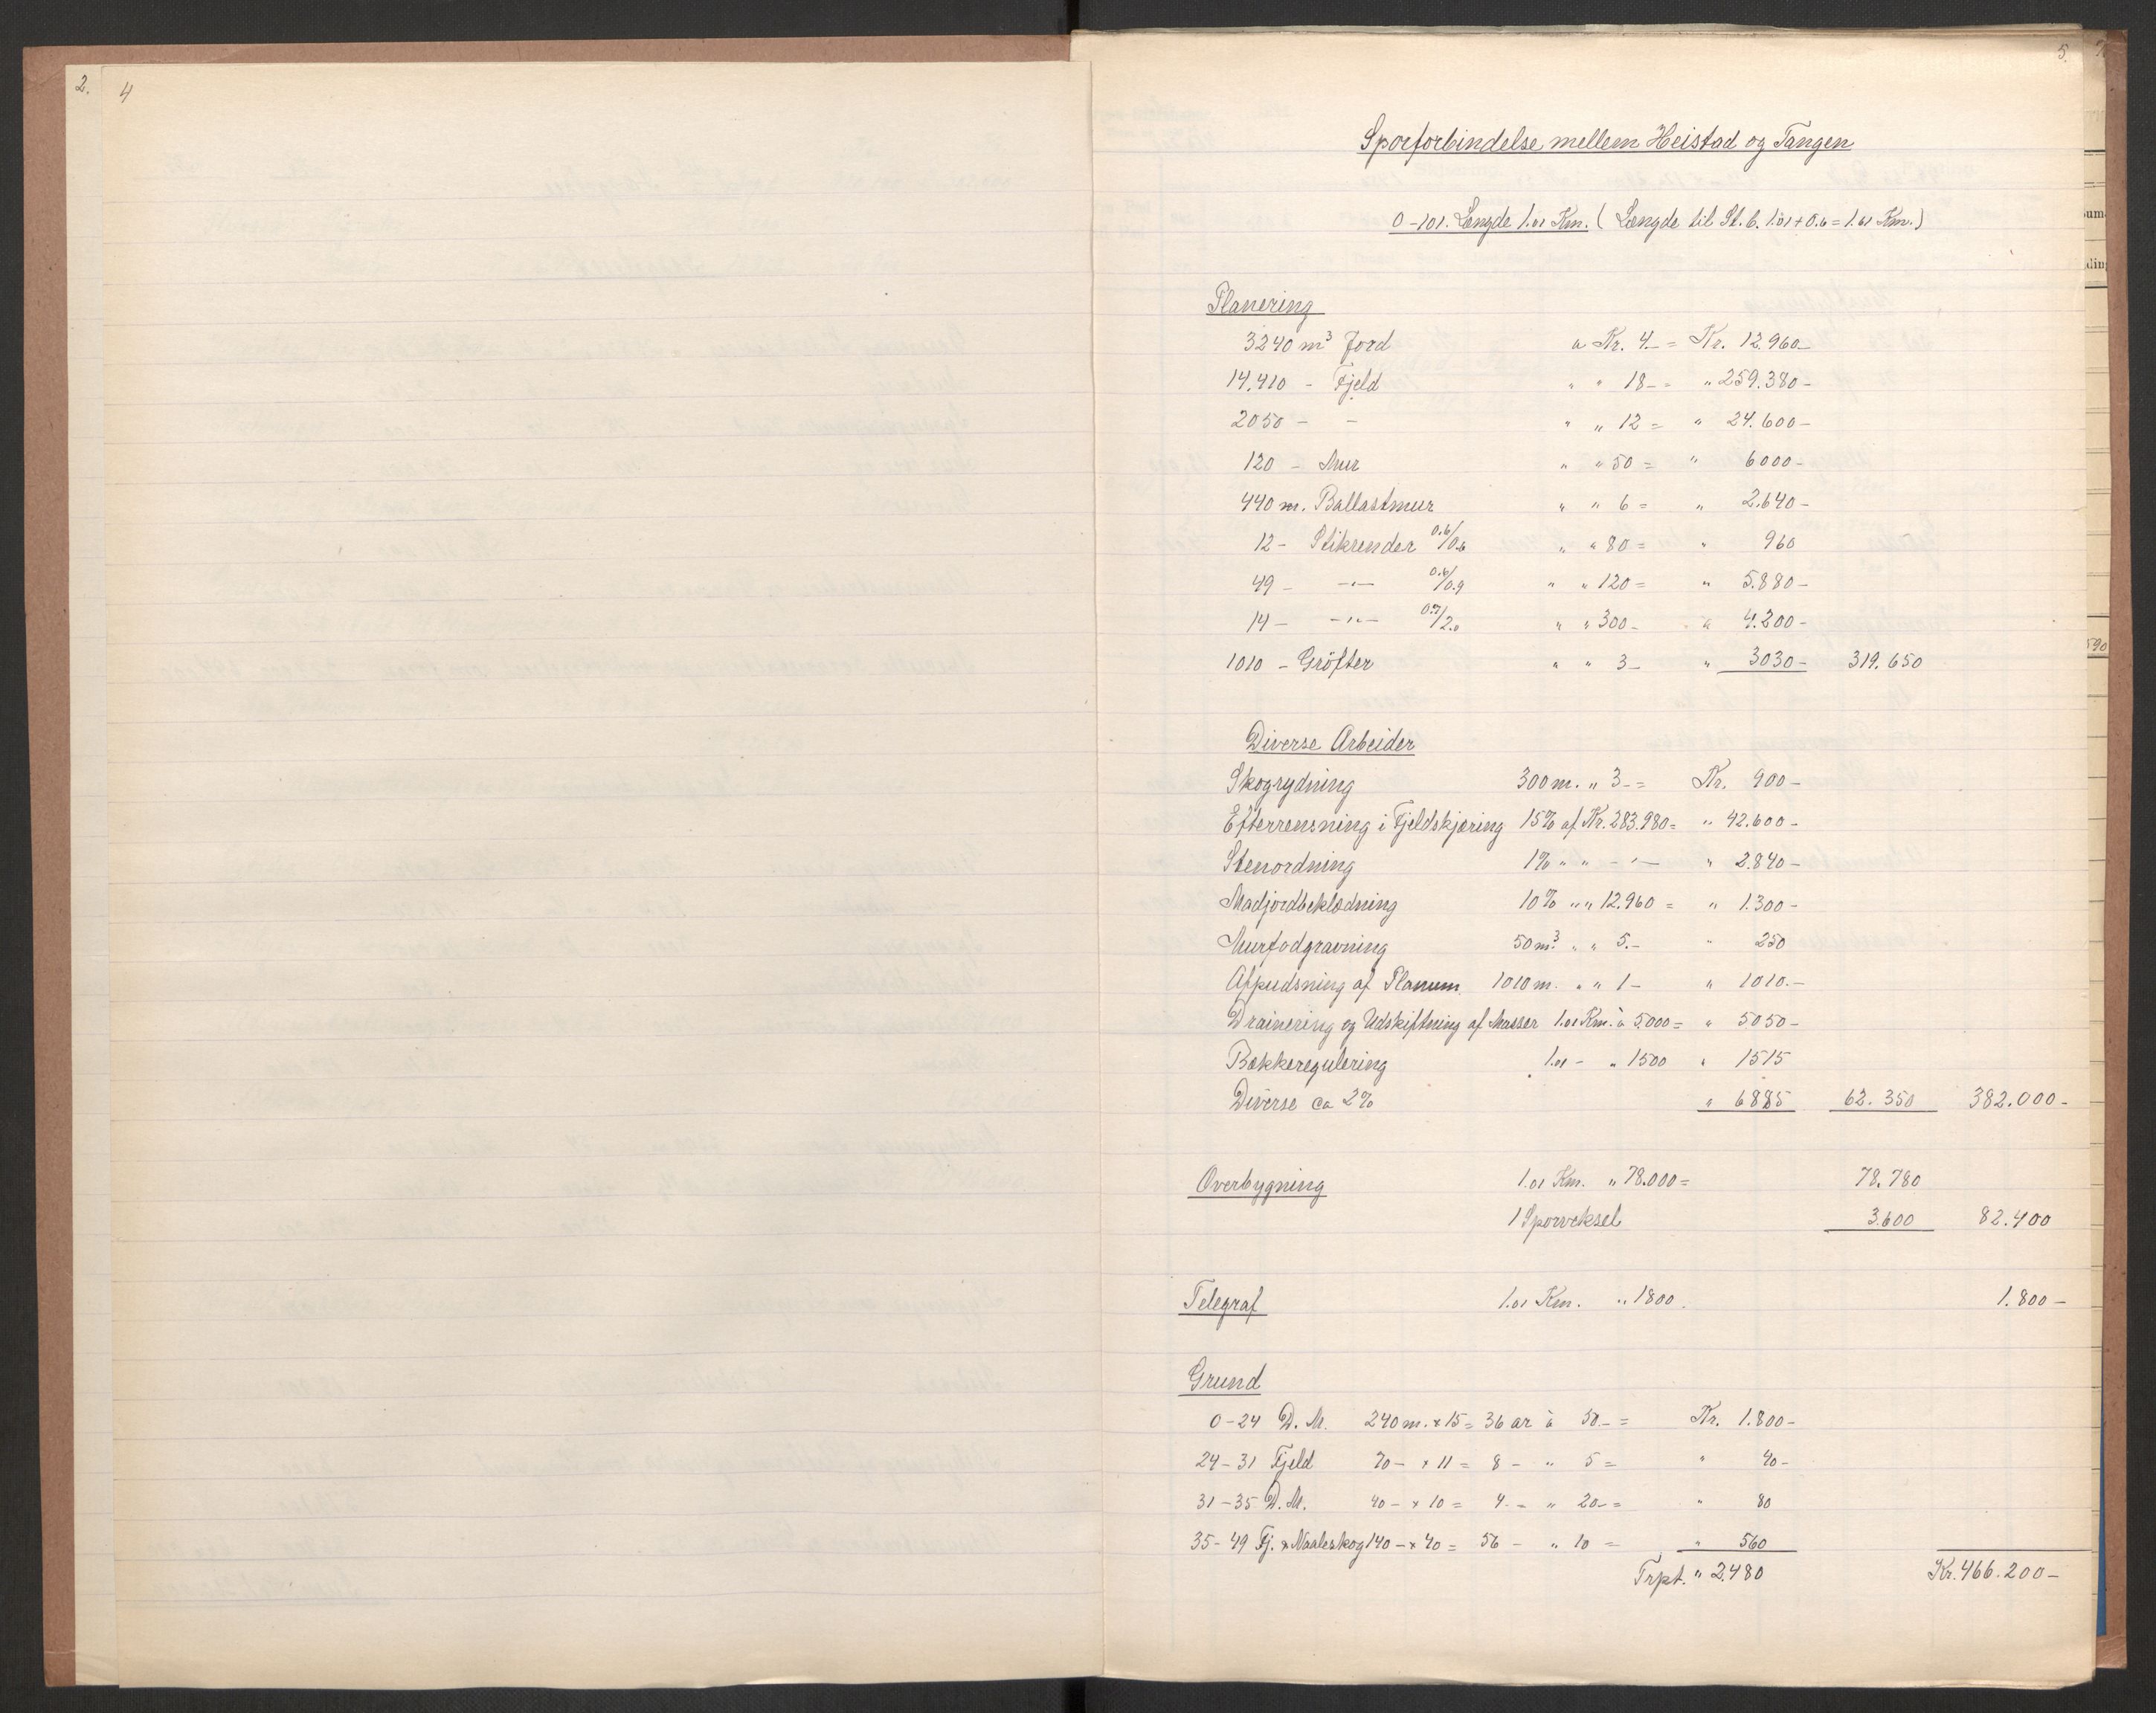 2.
4
5.
Sporforbindelse mellem Heistad og Tangen
0-101. Længde 1.01 Km. ( Længde til St. b. 1.01 + 0.6 = 1.61 Km. )
Planering
3240 m³ Jord a Kr. 4.- = Kr. 12.960-
14.410 - Fjeld " " 18- = " 259.380-
2050 - - " " 12 = " 24.600-
120 - Mur " " 50 = " 6000-
440 m. Ballastmur " " 6 = " 2.640-
12 - Stikrender 0.6/0.6 " " 80 = " 960
49 - -"- 0.6/0.9 " " 120 = " 5.880-
14 - -"- 0.7/2.0 " " 300 - " 4.200-
1010 - Gröfter " " 3- " 3030- 319.650
Diverse Arbeider
Skogrydning 300 m. " 3- = Kr. 900-
Efterrensning i Fjeldskjæring 15% af Kr. 283.980 = " 42.600-
Stenordning 1% " " -"- " 2.840-
Madjordbeklædning 10% " " 12.960 = " 1.300-
Murfodgravning 50 m³ " " 5.- " 250
Afpudsning af Planum 1010 m. " " 1- " 1010.-
Drainering og Udskiftning af Masser 1.01 Km. à 5.000 = " 5050-
Bækkeregulering 1.01 - " 1500 " 1515
Diverse ca 2% " 6885 62.350 382.000-
Overbygning 1.01 Km. " 78.000 = 78.780
1 Sporveksel 3.600 82.400
Telegraf 1.01 Km. " 1800. 1.800-
Grund
0-24 D. M. 240 m. x 15 = 36 ar à 50.- = Kr. 1.800-
24-31 Fjeld 70 - x 11 = 8 - " 5 = " 40-
31-35 D. M. 40 - x 10 = 4 - " 20- = " 80
35-49 Fj. & Naaleskog 140 - x 40 = 56 - " 10 = " 560
Trpt. " 2.480 Kr. 466.200-
um
din
590